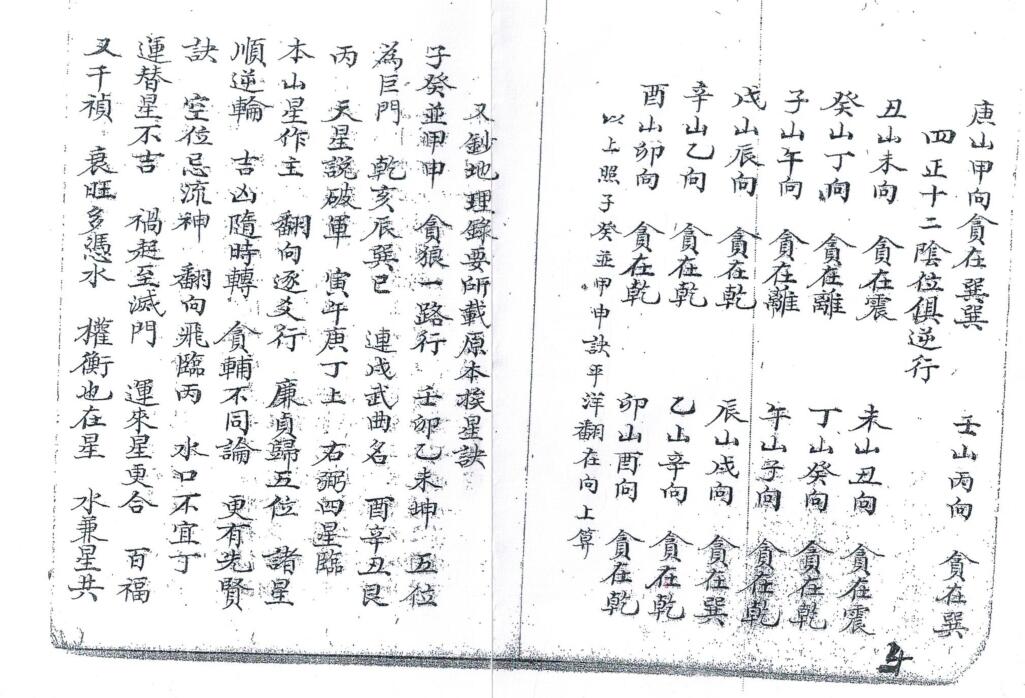 庚山甲向貪在巽巽　壬山丙向　貪在巽
四正十二陰位俱逆行
丑山未向　貪在震　未山丑向　貪在震
癸山丁向　貪在離　丁山癸向　貪在乾
子山午向　貪在離　午山子向　貪在乾
戌山辰向　貪在乾　辰山戌向　貪在巽
辛山乙向　貪在乾　乙山辛向　貪在乾
酉山卯向　貪在乾　卯山酉向　貪在乾
以上照子癸並甲申訣平洋翻在向上算
又鈔地理錄要所載原本挨星訣
子癸並甲申　貪狼一路行　壬卯乙未坤　五位
為巨門　乾亥辰巽巳　連戌武曲名　酉辛丑艮
丙　天星說破軍　寅午庚丁上　右弼四星臨
本山星作主　翻向逐爻行　廉貞歸五位　諸星
順逆輪　吉凶隨時轉　貪輔不同論　更有先賢
訣　空位忌流神　翻向飛臨丙　水口不宜丁
運替星不吉　禍起至滅門　運來星更合　百福
又千禎　衰旺多憑水　權衡也在星　水兼星共